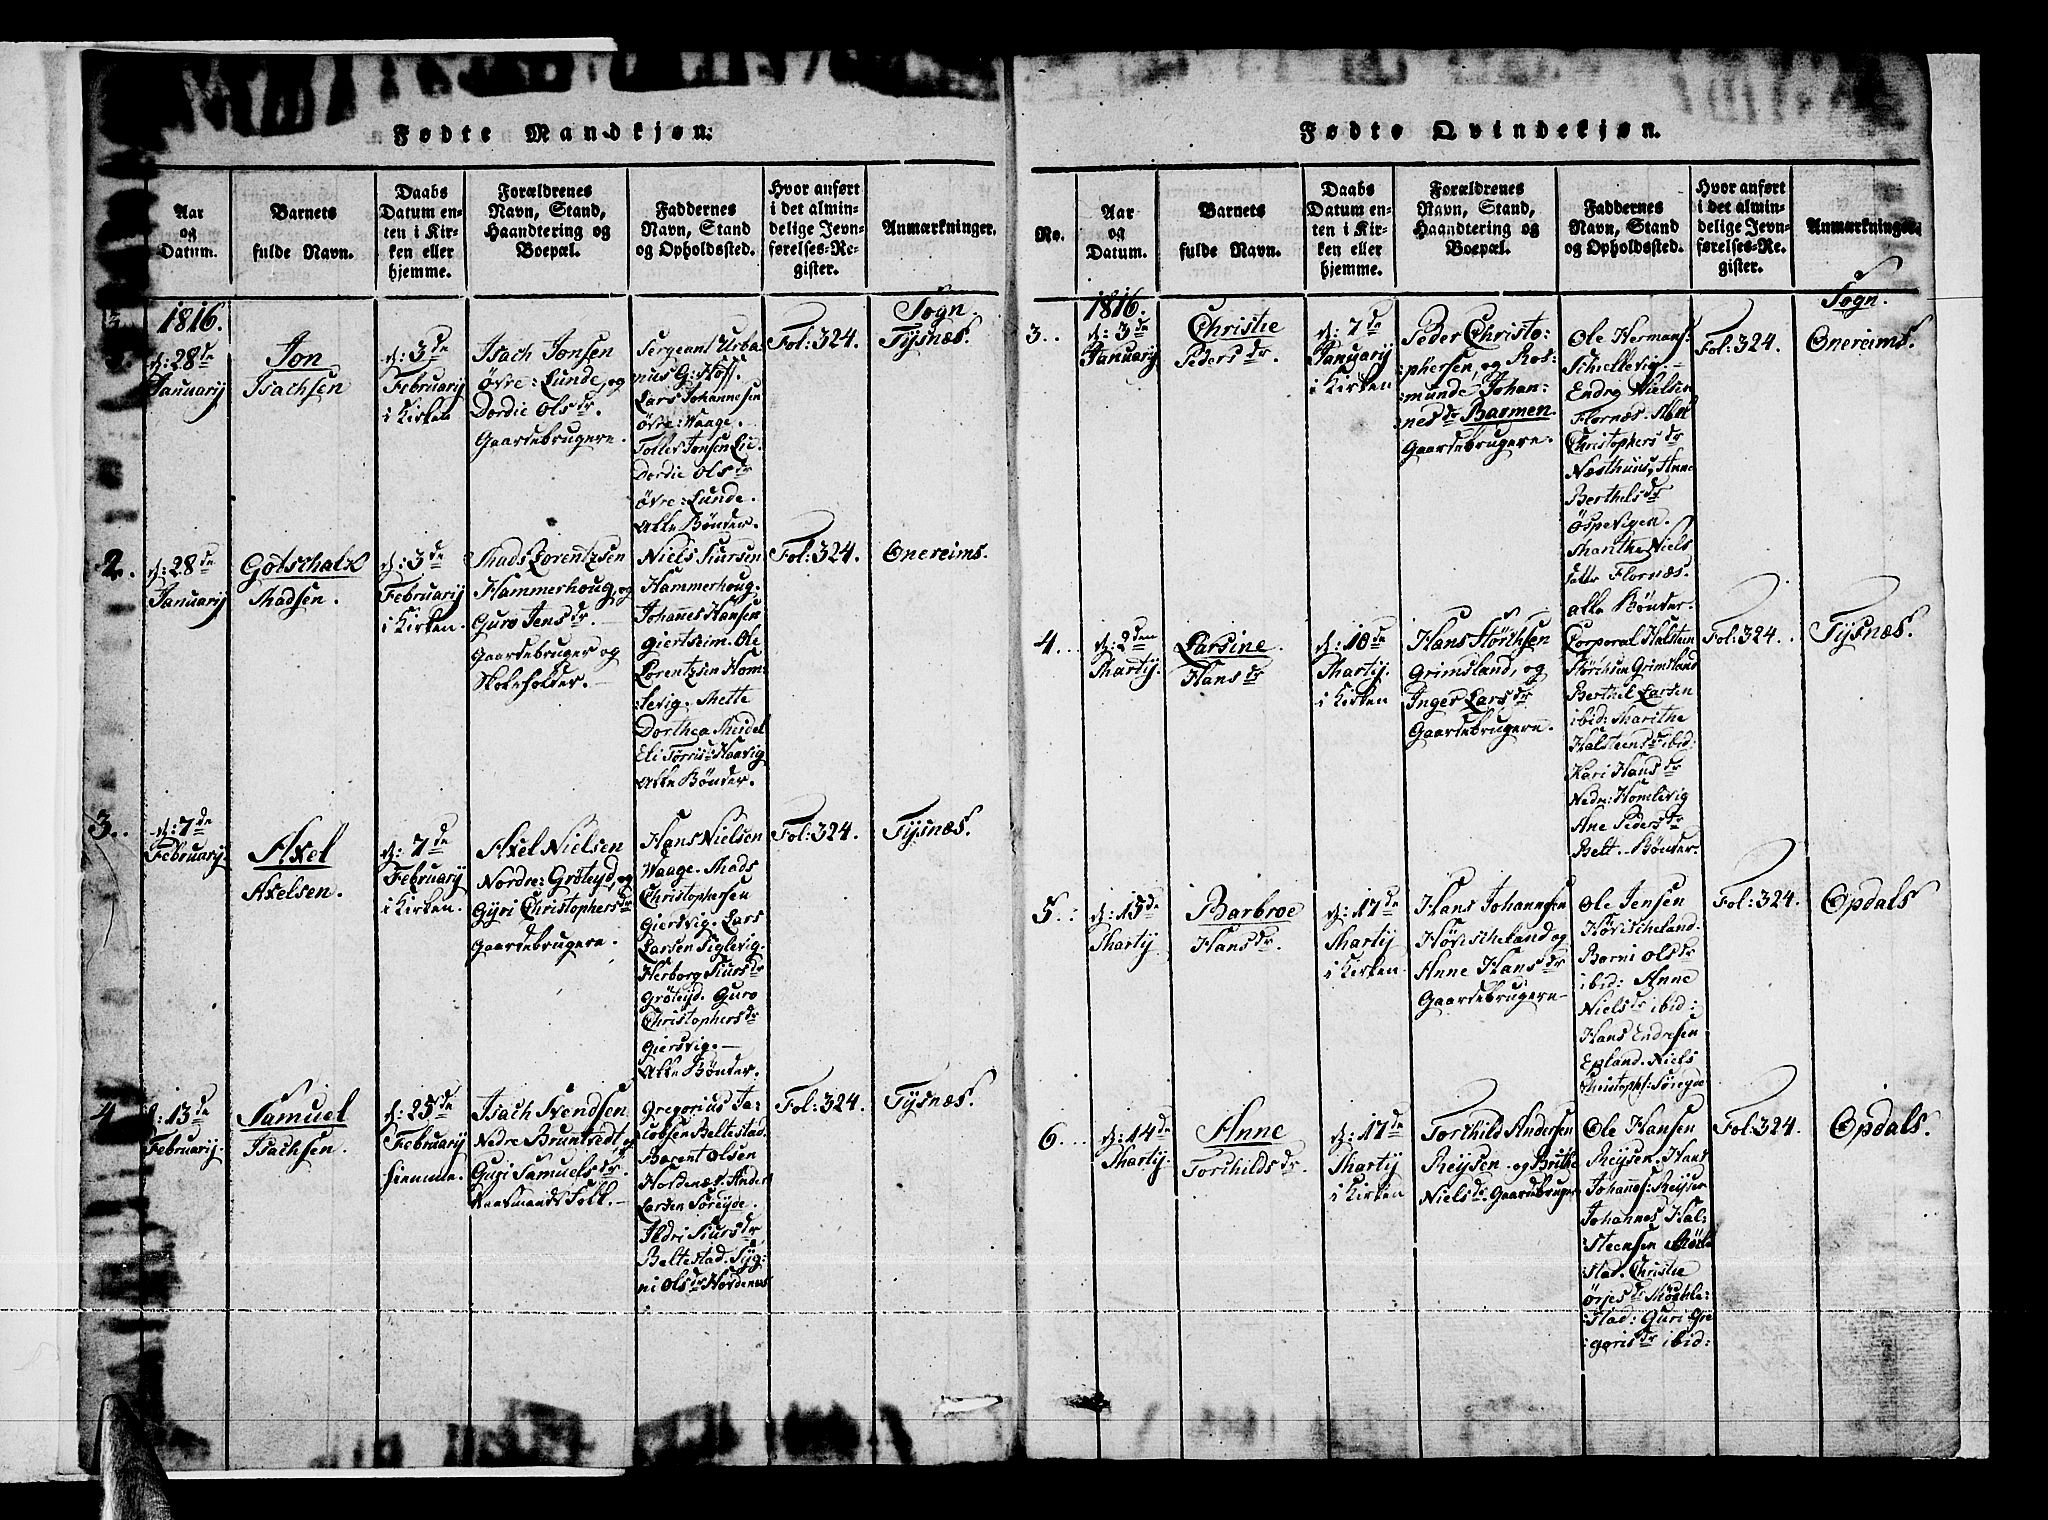 Fødte Mandkjøn.
Aar
og
Datum.
Barnets
fulde Navn.
Daabs
Datum en-
ten i Kir-
ken eller
hjemme.
Forældrenes
Navn, Stand,
Haandtering og
Boepæl.
Faddernes
Navn, Stand
og Opholdssted.
Hvor anført
i det almin-
delige Jevn-
førelses-Re-
gister.
Anmærkninger.
1816.
d: 28de
Januarij
Jon
Isachsen
d: 3de
February
i Kirken
Isach Jonsen
øvre: Lunde, og
Dordie Olsdr.
Gaardebrugere.
Sergeant Urba-
nus G: Hoff.
Lars Johannesen
øvre: Waage.
Tollev Jonsen Lie.
Dordie Olsdr
øvre: Lunde.
Alle Bønder.
Fol: 324.
Sogn.
Tysnæs.
2.
d: 28de
Januarij
Gotschalk
Madsen.
d: 3de
February
i Kirken.
Mads Lorentzsen
Hammerhoug, og
Guro Jensdr.
Gaardebruger og
Skoleholder.
Niels Siursen
Hammerhoug.
Johannes Hansen
Giertsim. Ole
Lorentzsen Hom-
levig. Mette
Dorthea Meidel
Eli Torrisdr Haavig
Alle Bønder.
Fol: 324.
Onereims.
3.
d: 7de
February.
Axel
Axelsen.
d: 7de
February
i Kirken.
Axel Nielsen
Nordre: Grøteyd, og
Gyri Christophersdr
Gaardebrugere.
Hans Nielsen
Waage. Mads
Christophersen
Giersvig. Lars
Larsen Siglevig.
Herborg Siursdr
Grøteyd. Guro
Christophersdr
Giersvig.
Alle Bønder.
Fol: 324.
Tysnæs.
4
d: 13de
Februarij.
Samuel
Isachsen.
d: 25de
February
hiemme.
Isach Svendsen
Nedre Bruntvedt, og
Guri Samuelsdr.
Huusmands Folk.
Gregorius Ja-
cobsen Beltestad.
Barent Olsen
Hordenæs. Anders
Larsen Søreyde.
Ildri Siursdr
Beltestad. Syg-
ni Olsdr Hordenes
Fol: 324.
Tysnæs.
Fødte Qvindekjøn.
No.
Aar
og
Datum.
Barnets
fulde Navn.
Daabs
Datum en-
ten i Kir-
ken eller
hjemme.
Forældrenes
Navn, Stand,
Haandtering og
Boepæl.
Faddernes
Navn, Stand
og Opholdssted.
Hvor anført
i det almin-
delige Jevn-
førelses-Re-
gister.
Anmærkninger.
3.
1816.
d: 3de
January
Christie
Pedersdr.
d: 7de
January
i Kirken
Peder Christo:
phersen, og Ros-
munde Johan:
nesdr Barmen.
Gaardebrugere.
Ole Hermans:
Schiellevig.
Endre Nielsen
Flornæs.
Christophersdr
Næsthuus, Anne
Berthelsdr
Øspevigen.
Marithe Niels
datter Flornæs.
Alle Bønder.
Fol: 324.
Sogn.
Onereims.
4.
d: 2den
Martij.
Larsine.
Hansdr
d: 10de
Martij.
i Kirken
Hans Størchsen
Grimsland, og
Inger Larsdr
Gaardebrugere.
Corporal Halsteen
Størchsen Grimsland
Berthel Larsen
ibid: Marithe
Halsteensdr ibid:
Kari Hansdr
Nedre: Homlevig
Ane Pedersdr
Belt. Bønder.
Fol: 324.
Tysnæs.
5.
d: 15de
Martij
Barbroe
Hansdr.
d: 17de
Martij
i Kirken
Hans Johannesen
Høvischeland og
Anne Hansdr
Gaardebrugere
Ole Jensen
Høvischeland.
Barni Olsdr
ibid: Anne
Nielsdr ibid:
Hans Endresen
Epland. Niels
Christophs: Søreyde
Fol: 324.
Opdals
6.
d: 14de
Martij.
Anne
Torchildsdr.
d: 17de
Martij
i Kirken
Torchild Andersen
Reysen og Brithe
Nielsdr. Gaardebruger
Ole Hansen
Reysen. Hans
Johannes: Reysen
Johannes Hal:
steensen
stad. Christie
Ørjesdr
stad: Guri Gre
gorisdr ibid:
Fol: 324.
Opdals.